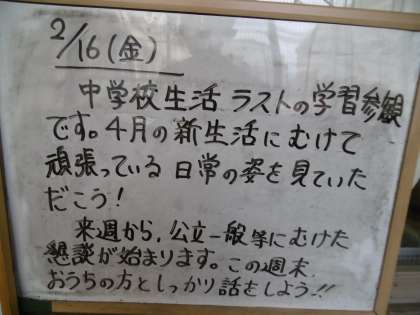 2/16(金)
中学校生活 ラストの学習参観
です。4月の新生活にむけて
頑張っている 日常の姿を見ていた
だこう!
来週から,公立一般等にむけた
懇談が始まります。この週末,
おうちの方としっかり話をしよう!!